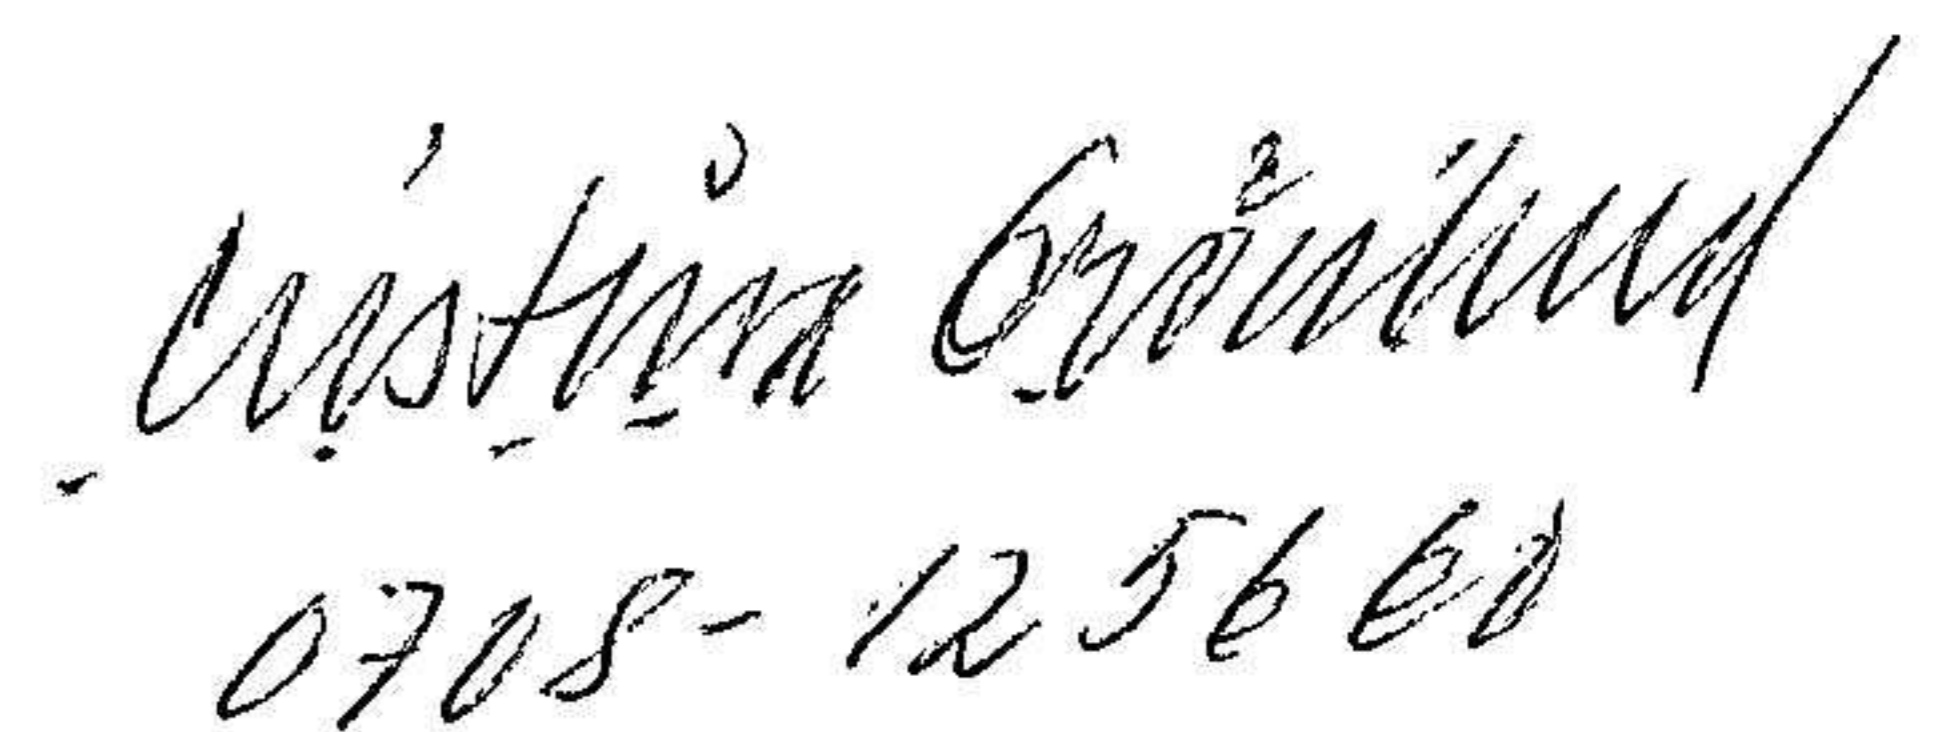 Cristina Grönlund
0708-125660